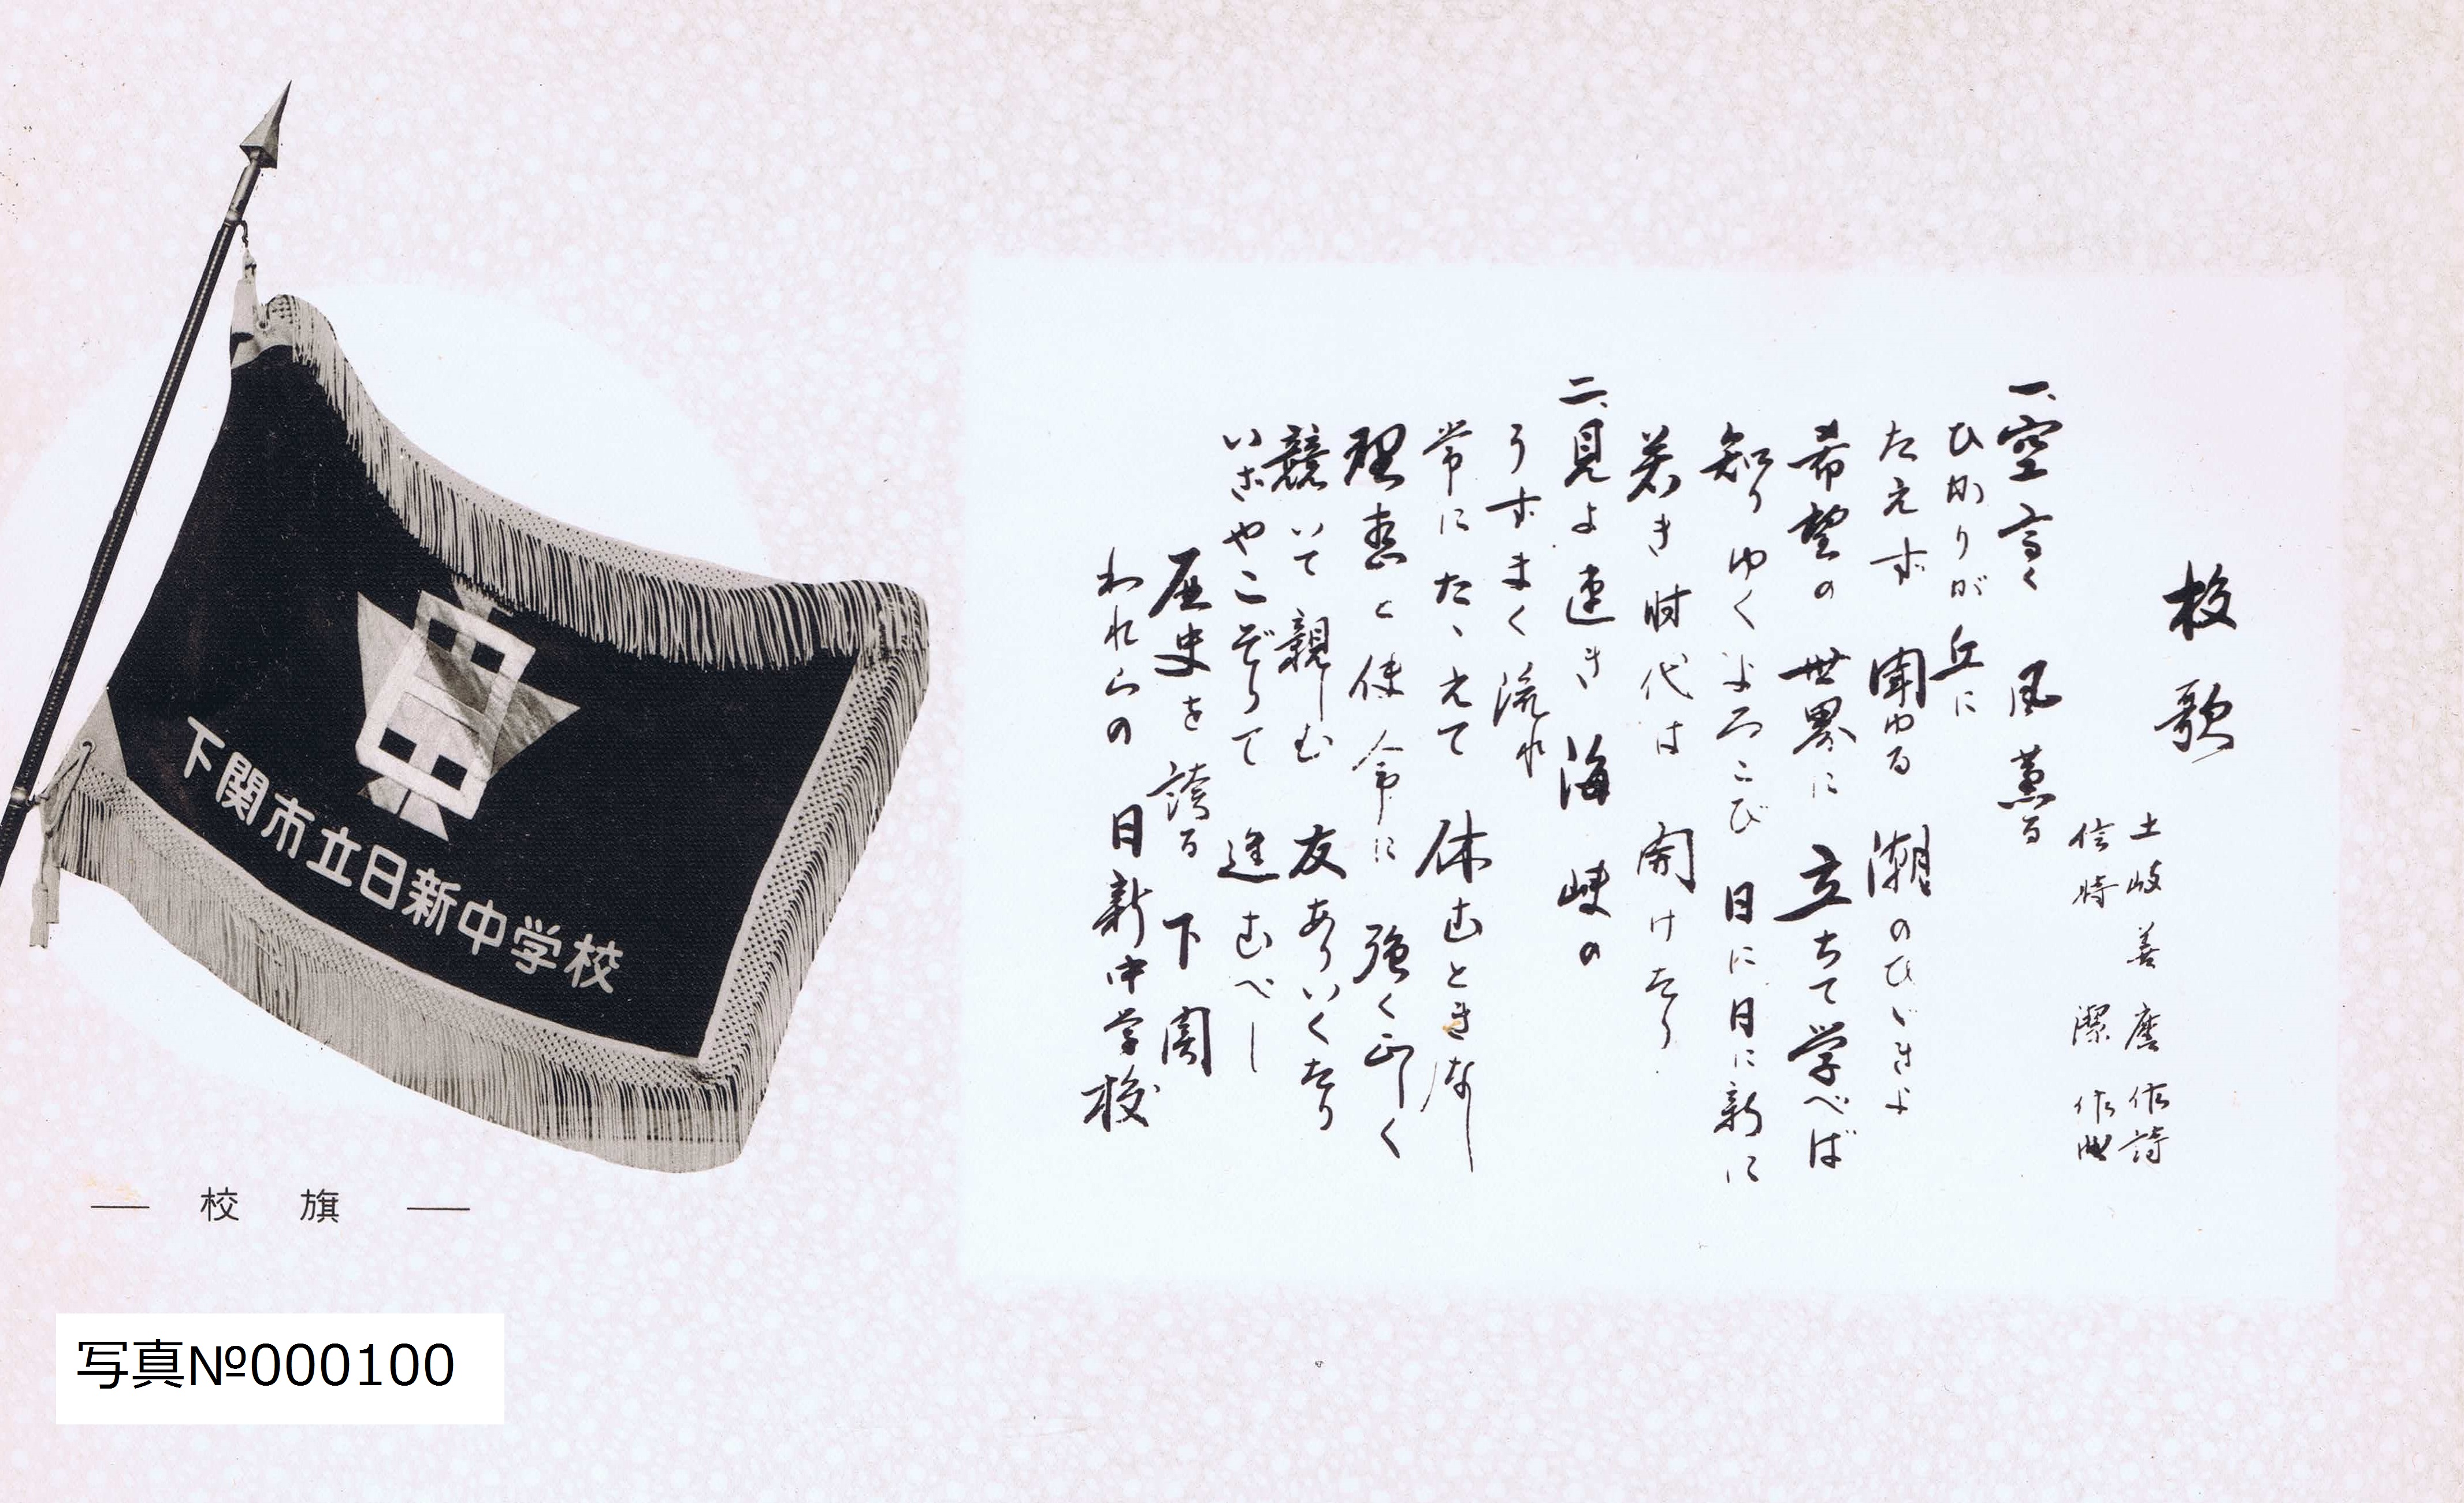 校歌
土岐善麿 作詩
信時 潔 作曲
一、空高く 風薫る
ひかりが丘に
たえず 聞ゆる 潮のひゞきよ
希望の 世界に 立ちて学べば
知りゆくよろこび 日に日に新に
若き時代は 開けたり
二、見よ速き 海峡の
うずまく流れ
常にたゝえて 休むときなし
理想と使命に 強く正しく
競いて親しむ 友あいいくたり
いざやこぞりて 進むべし
歴史を誇る 下関
われらの 日新中学校
下関市立日新中学校
― 校 旗 ―
写真№000100